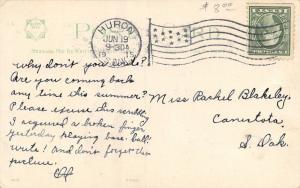 $8.00
PO RD
HURON
JUN 19
9-30A
19 15
why don't you write?
Are you coming back
any time this summer?
Please excuse this scribbling
I acquired a broken finger
yesterday playing base-ball.
Write! And don't forget the
picture.
Miss Rachel Blakeley,
Canistota,
S. Dak.